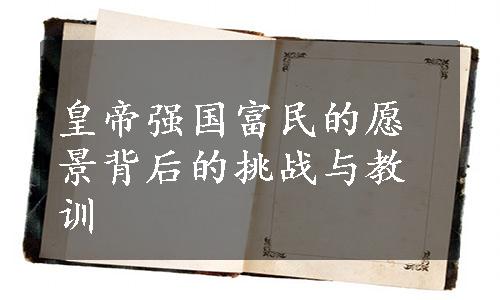 皇帝强国富民的愿
景背后的挑战与教
训